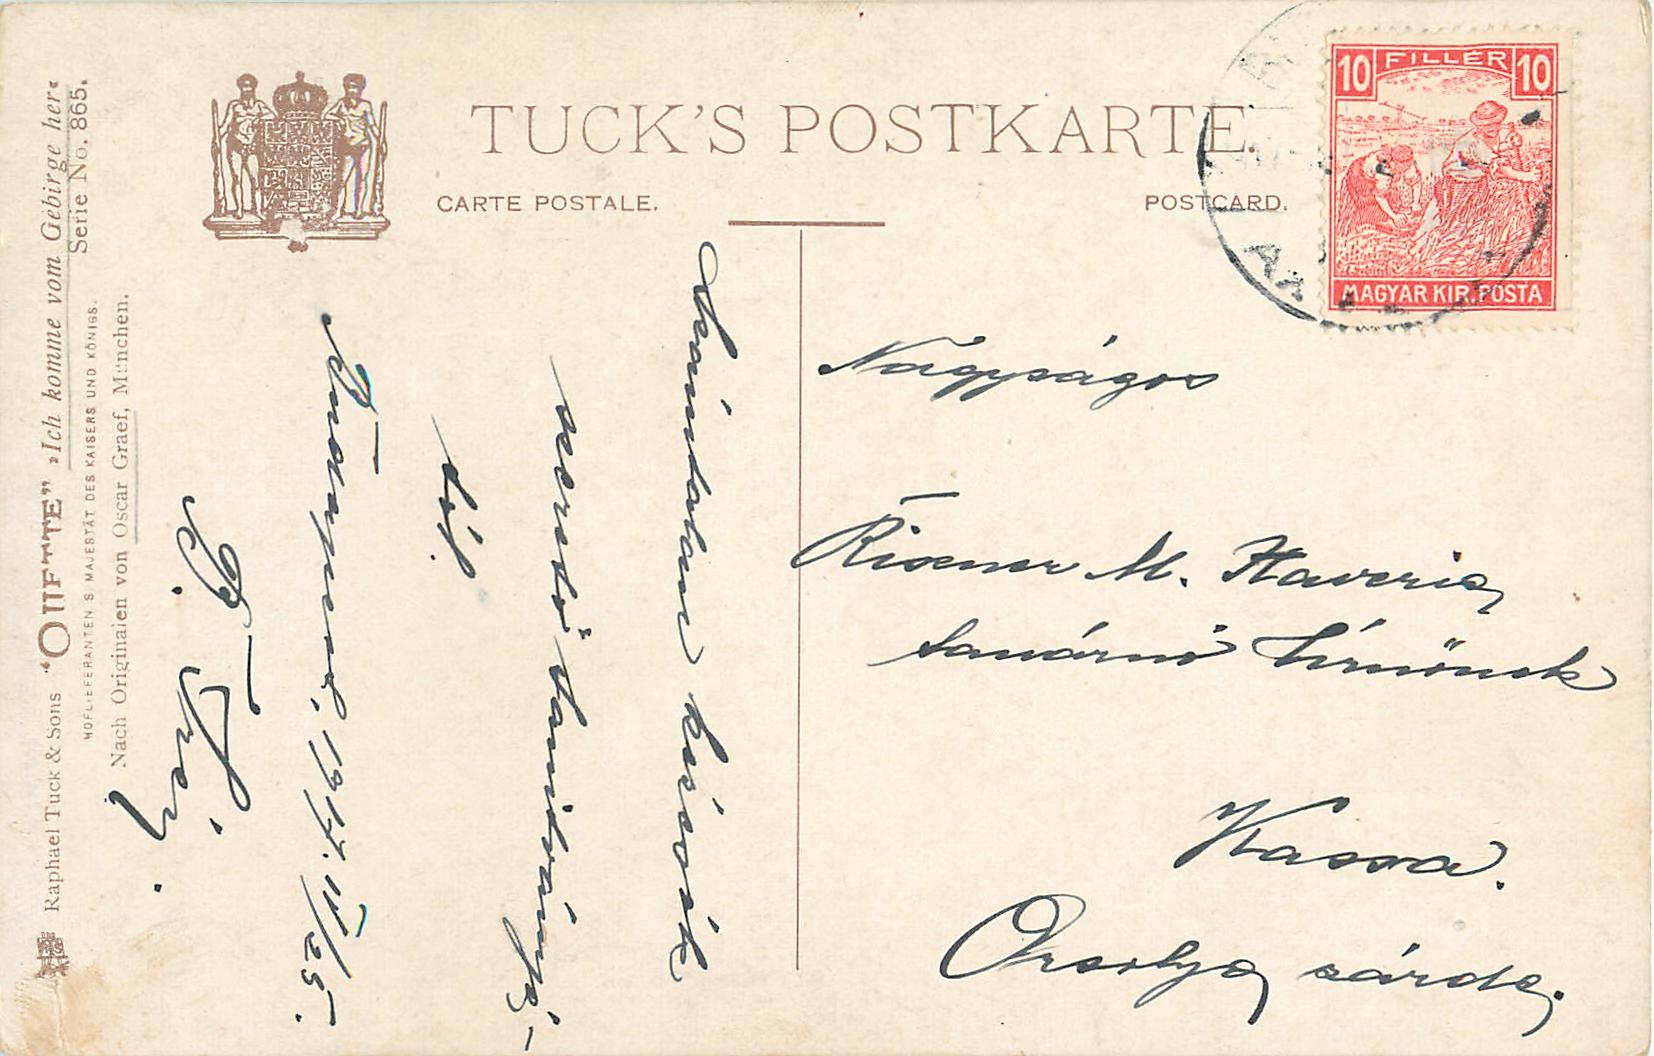 TUCK'S POSTKARTE.
CARTE POSTALE.
POSTCARD.
10 FILLÉR 10
MAGYAR KIR. POSTA
Raphael Tuck & Sons "OILETTE" »Ich komme vom Gebirge her«
Serie No. 865.
HOFLIEFERANTEN S MAJESTÄT DES KAISERS UND KÖNIGS.
Nach Originalen von Oscar Graef, München.
Számtalan kézcsók
szerető tanítványá-
tól.
1917. IV/25.
Nagyságos
M. Xaveria
tanárnő Úrnőnek
Kassa.
Orsolya zárda.